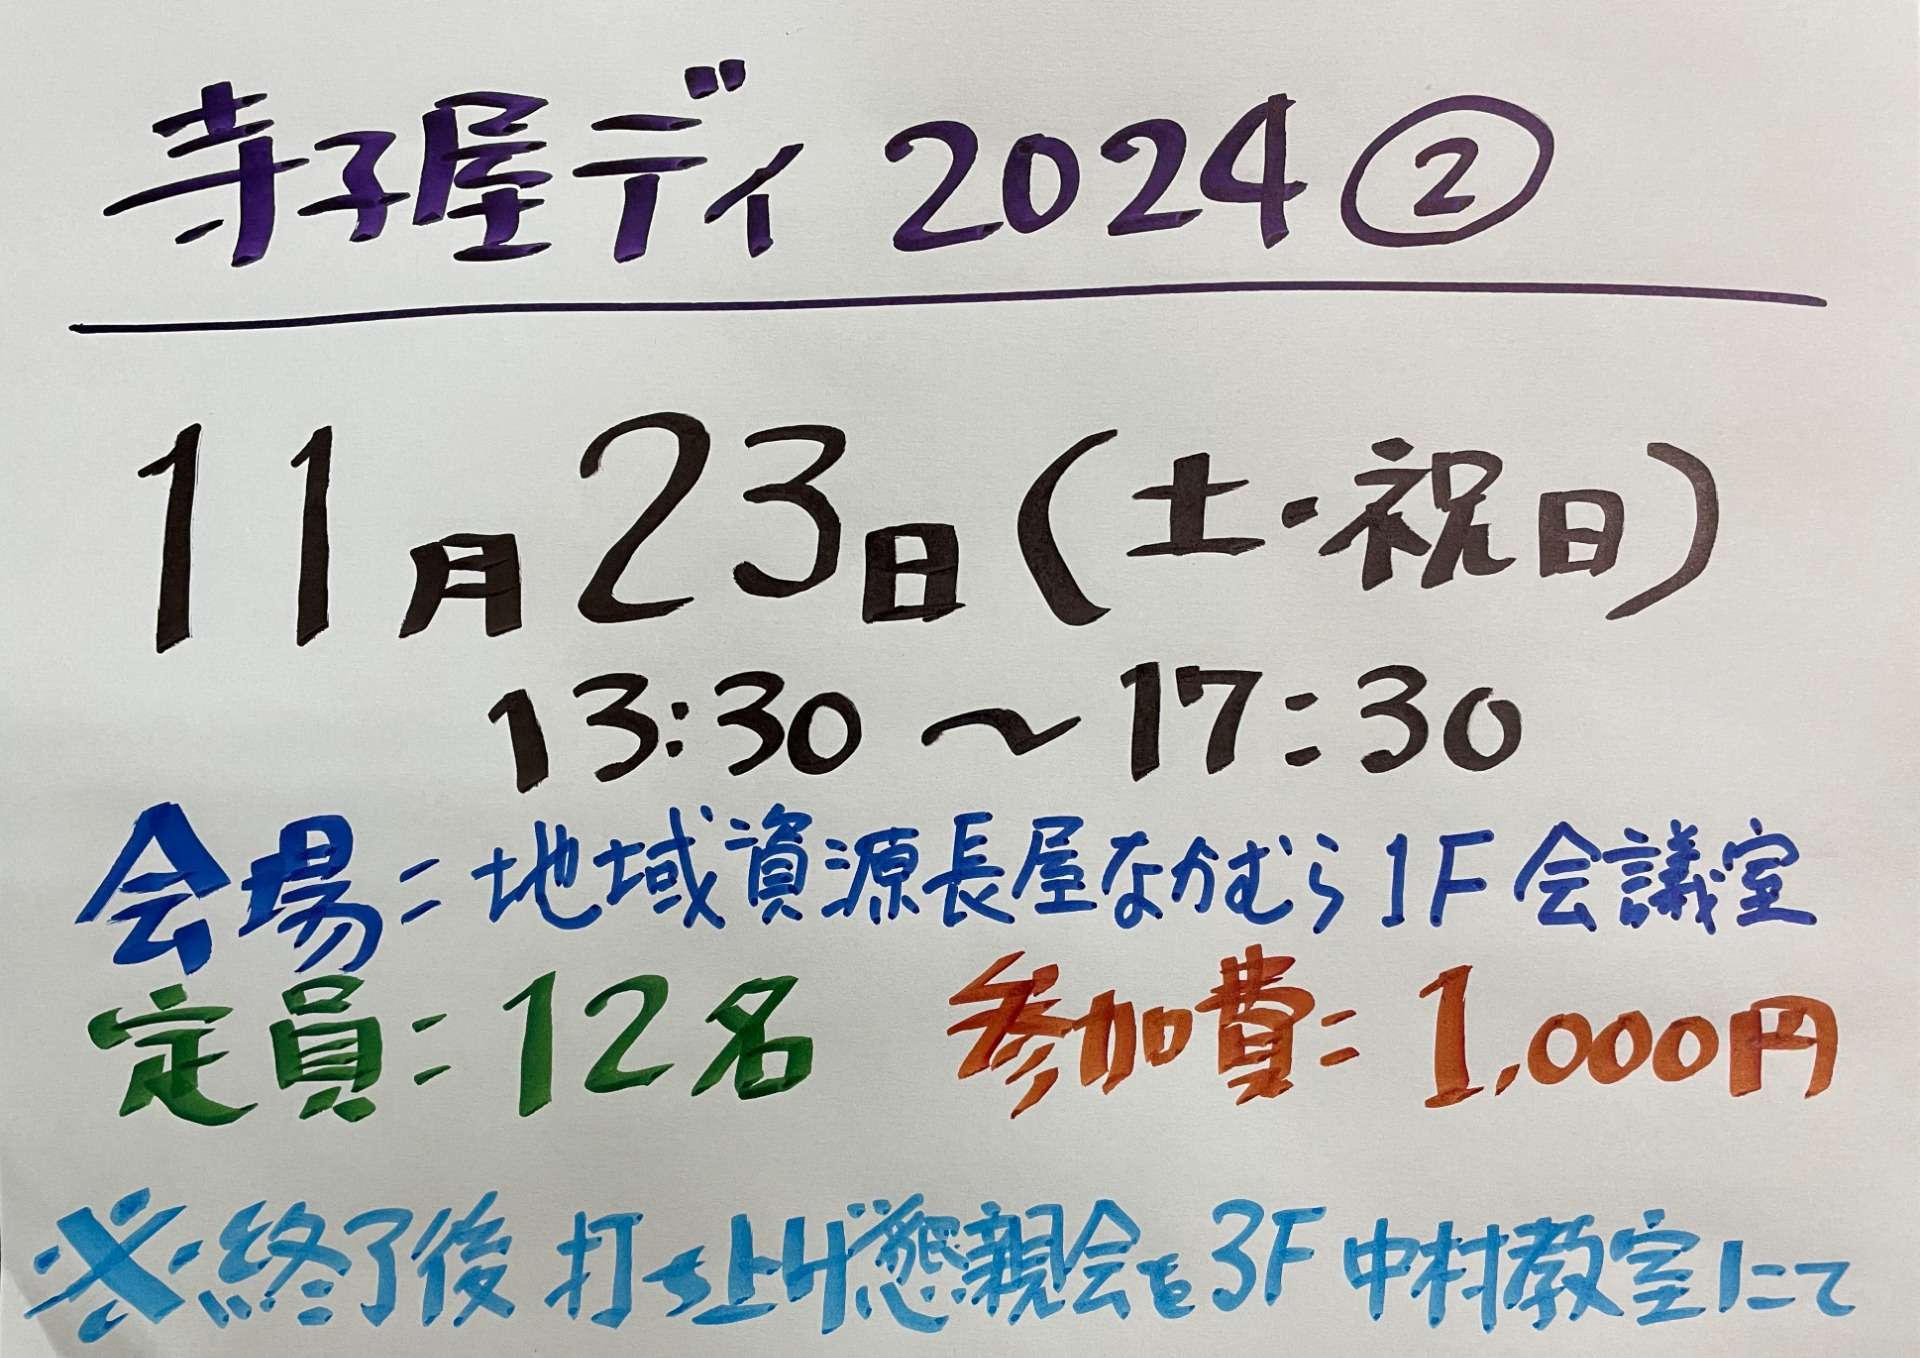 寺子屋ディ 2024②
11月23日(土・祝日)
13:30〜17:30
会場:地域資源長屋なかむら1F会議室
定員:12名 参加費:1,000円
※終了後 打ち上げ懇親会を3F 中村教室にて